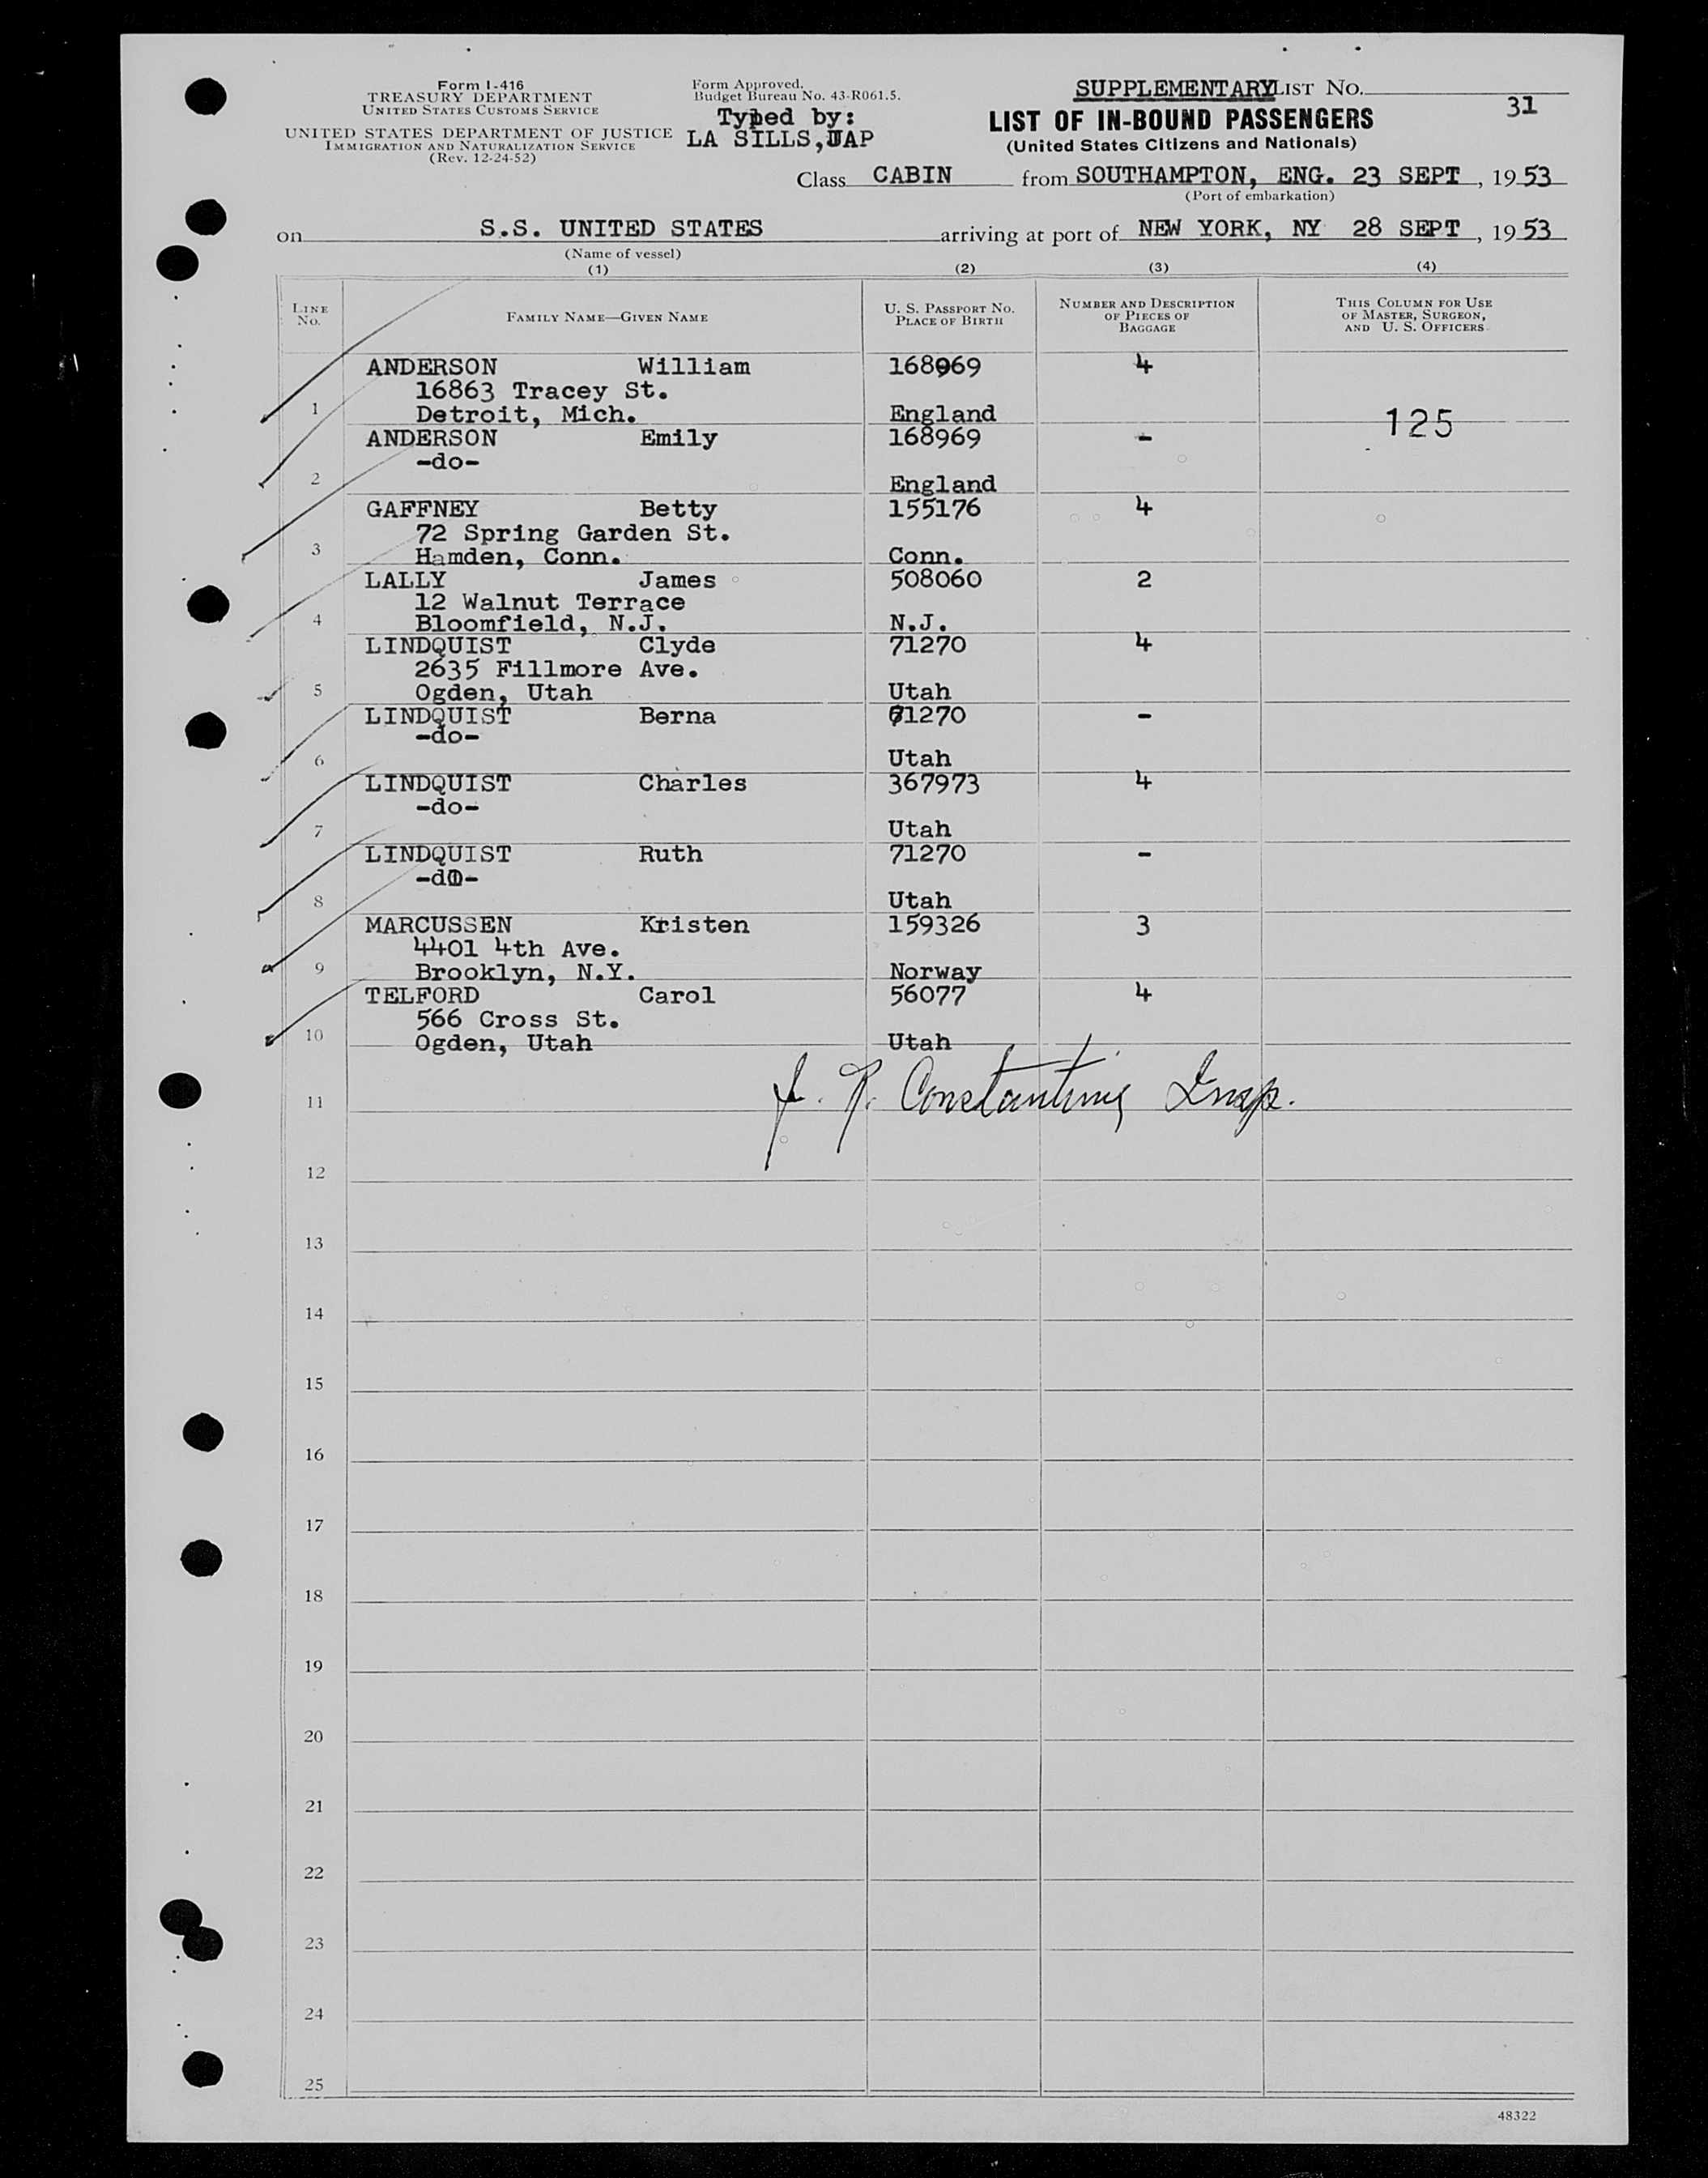 Form I-416
TREASURY DEPARTMENT
UNITED STATES CUSTOMS SERVICE
UNITED STATES DEPARTMENT OF JUSTICE
IMMIGRATION AND NATURALIZATION SERVICE
(Rev. 12-24-52)
Form Approved.
Budget Bureau No. 43-R061.5.
Typed by:
LA SILLS, JAP
SUPPLEMENTARY LIST No.
31
LIST OF IN-BOUND PASSENGERS
(United States Citizens and Nationals)
Class CABIN from SOUTHAMPTON, ENG. 23 SEPT, 1953
(Port of embarkation)
on S.S. UNITED STATES arriving at port of NEW YORK, NY 28 SEPT, 1953
(Name of vessel)
(1) (2) (3) (4)
LINE No. FAMILY NAME—GIVEN NAME U. S. PASSPORT NO. PLACE OF BIRTH NUMBER AND DESCRIPTION OF PIECES OF BAGGAGE THIS COLUMN FOR USE OF MASTER, SURGEON, AND U. S. OFFICERS
ANDERSON William 168969 4
16863 Tracey St.
1 Detroit, Mich. England 125
ANDERSON Emily 168969 -
-do-
2 England
GAFFNEY Betty 155176 4
72 Spring Garden St.
3 Hamden, Conn. Conn.
LALLY James 508060 2
12 Walnut Terrace
4 Bloomfield, N.J. N.J.
LINDQUIST Clyde 71270 4
2635 Fillmore Ave.
5 Ogden, Utah Utah
LINDQUIST Berna 71270 -
-do-
6 Utah
LINDQUIST Charles 367973 4
-do-
7 Utah
LINDQUIST Ruth 71270 -
-do-
8 Utah
MARCUSSEN Kristen 159326 3
4401 4th Ave.
9 Brooklyn, N.Y. Norway
TELFORD Carol 56077 4
566 Cross St.
10 Ogden, Utah Utah
11 Insp.
12
13
14
15
16
17
18
19
20
21
22
23
24
25
48322